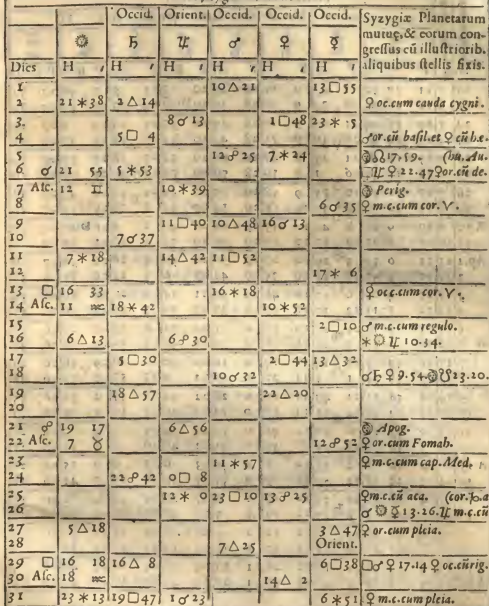 Occid. Orient. Occid. Occid. Occid. Syzygiæ Planetarum
☉ ♄ ♃ ♂ ♀ ☿ mutuę, & eorum con-
gressus cū illustriorib.
Dies H ′ H ′ H ′ H ′ H ′ H ′ aliquibus stellis fixis.
1 10 △ 21 13 □ 55
2 21 ✶ 38 2 △ 14 ♀ oc. cum cauda cygni.
3 8 ☌ 13 1 □ 48 23 ✶ 5
4 5 □ 4 ♂ or. cū basil. et ♀ cū
5 12 ☍ 25 7 ✶ 24 17. 59.
6 ☌ 21 55 5 ✶ 53 □ ♃ ♀ 22. 47 ♀ or. cū de.
7 Asc. 12 ♊ 10 ✶ 39 Perig.
8 6 ☌ 35 ♀ m. c. cum cor. ♈.
9 11 □ 40 10 △ 48 16 ☌ 13
10 7 ☌ 37
11 7 ✶ 18 14 △ 42 11 □ 52
12 17 ✶ 6
13 □ 16 33 16 ✶ 18 ♀ occ. cum cor. ♈.
14 Asc. 11 ♒ 18 ✶ 42 10 ✶ 52
15 2 □ 10 ♂ m. c. cum regulo.
16 6 △ 13 6 ☍ 30 ✶ ☉ ♃ 10. 34.
17 5 □ 30 2 □ 44 13 △ 32
18 10 ☌ 32 ☌ ♄ ♀ 9. 54. ☋ 23. 20.
19 18 △ 57 22 △ 20
20
21 ☍ 19 17 6 △ 56 Apog.
22 Asc. 7 ♉ 12 ☍ 52 ♀ or. cum Fomah.
23 11 ✶ 57 ♀ m. c. cum cap. Med.
24 22 ☍ 42 0 □ 8
25 12 ✶ 0 23 □ 10 13 ☍ 25 ♀ m. c. cū aca.
26 ☌ ☉ ☿ 13. 26. ♃ m. c. cū
27 5 △ 18 3 △ 47 ♀ or. cum pleia.
28 7 △ 25 Orient.
29 □ 16 18 16 △ 8 6 □ 38 □ ♂ ♀ 17. 14 ♀ oc. cū rig.
30 Asc. 18 ♒ 14 △ 2
31 23 ✶ 13 19 □ 47 1 ☌ 23 6 ✶ 51 ♀ m. c. cum pleia.